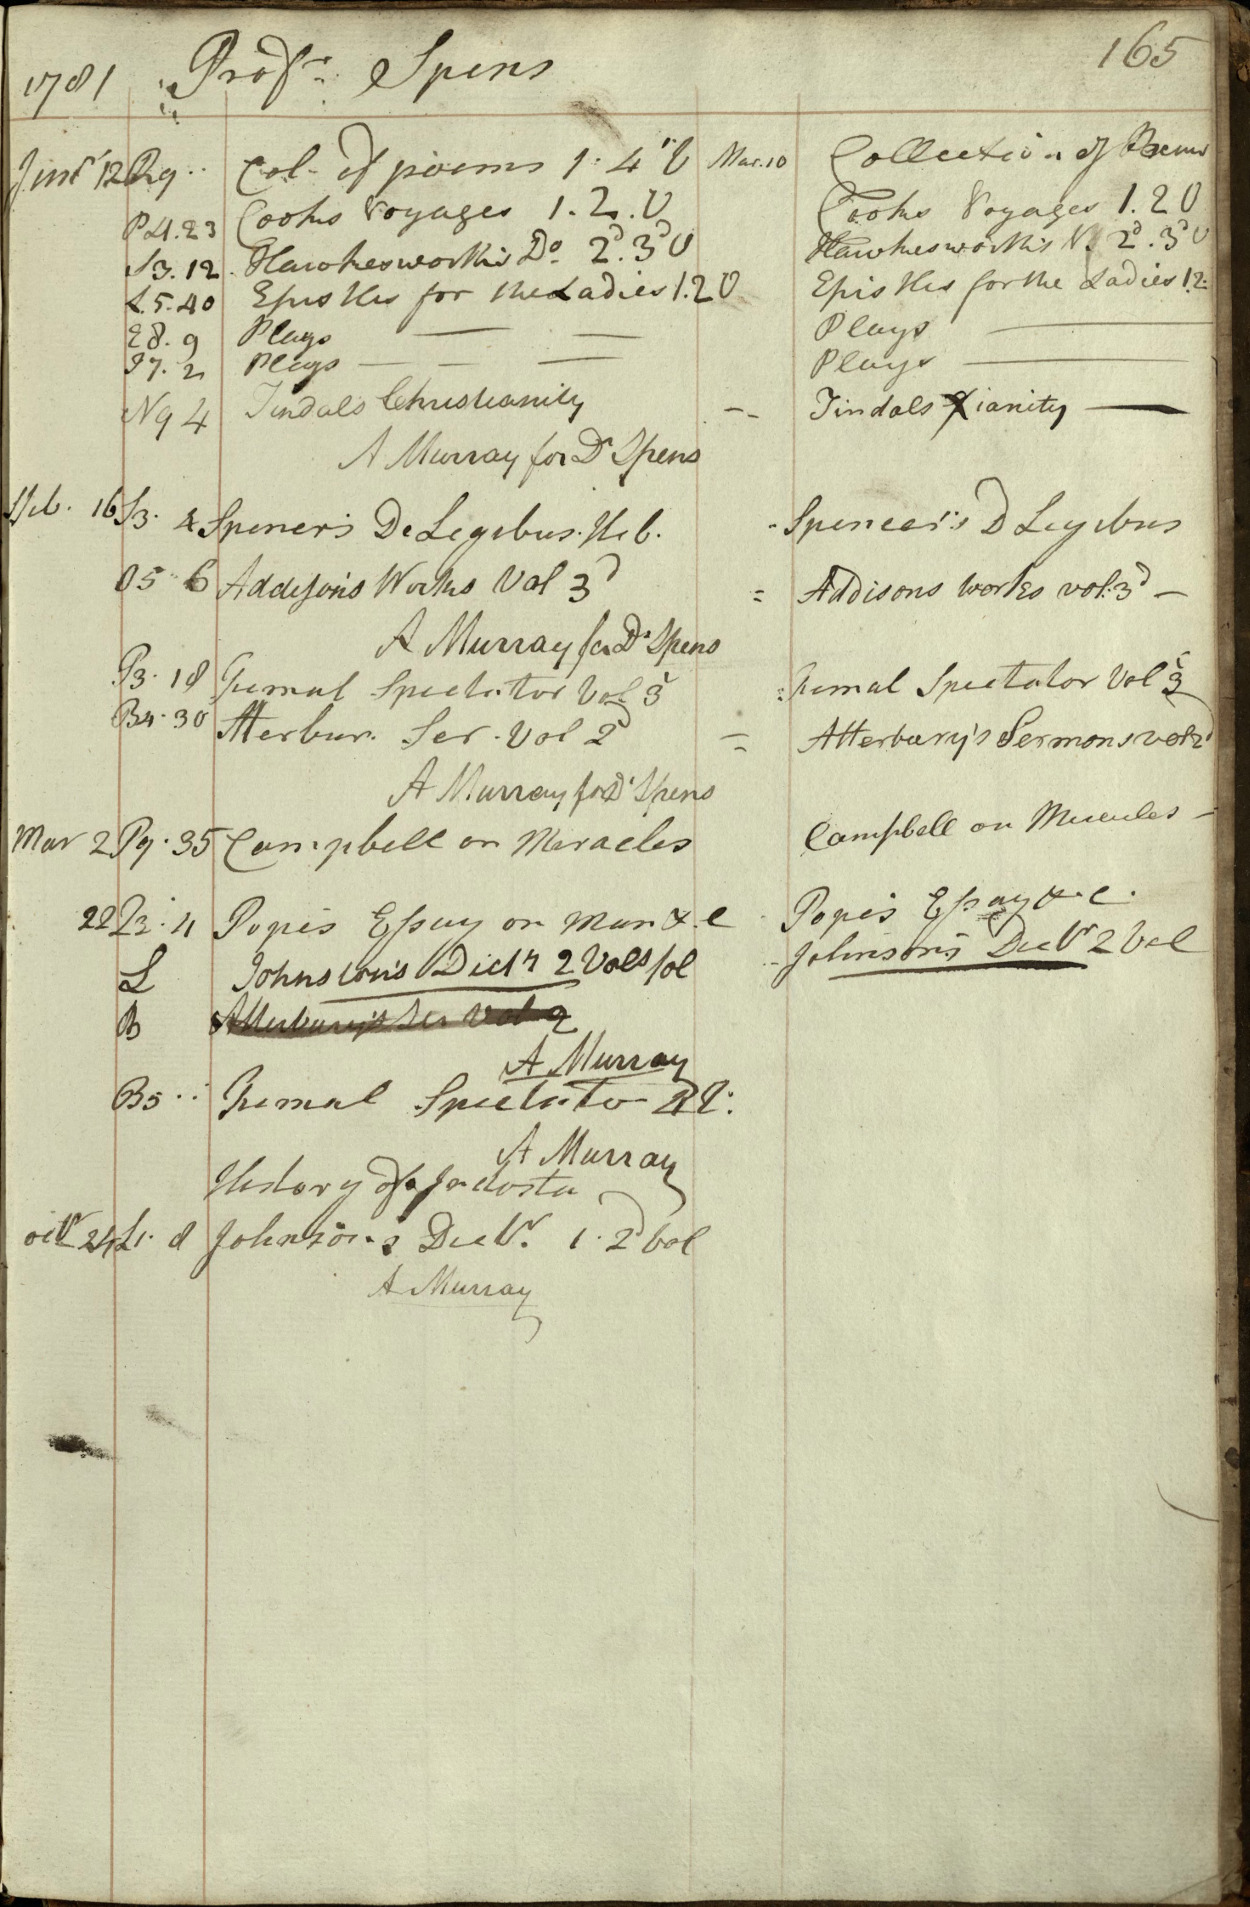 165
1781 Profr Spens
Janr 12 R9 Col. of poems 1. 4 V Mar. 10 Collection of Poems
P4.23 Cooks Voyages 1. 2. V Cooks Voyages 1. 2 V
S3. 12 Hawkesworths Do 2d. 3d V Hawkesworths 2d. 3d V
L. 5. 40 Epistles for the Ladies 1. 2 V Epistles for the Ladies 1 2
E8. 9 Plays Plays
I7. 2 Plays Plays
N9 4 Tindals Christianity Tindals Xianity
A Murray for Dr Spens
Feb. 16 S3. 4 Spencer's De Legibus. Heb. Spencer's D Legibus
O5 6 Addison's Works Vol 3d Addisons works vol: 3d
A Murray for Dr Spens
P3. 18 Femal Spectator Vol 3 Femal Spectator Vol 3
B4. 30 Atterbur. Ser. Vol 2d Atterbury's Sermons vol 2d
A Murray for Dr Spens
Mar 2 P9. 35 Campbell on Miracles Campbell on Miracles
22 P2. 11 Popes Essay on Man &.c Popes Essay &.c.
L Johnston's Dictr 2 Vols fol Johnson's Dictr 2 Vol
B Atterbury's Ser Vol 2
A Murray
B5 Femal Spectator
A Murray
History of
octr 24 L1. d Johnson's Dictr. 1. 2d vol
A Murray